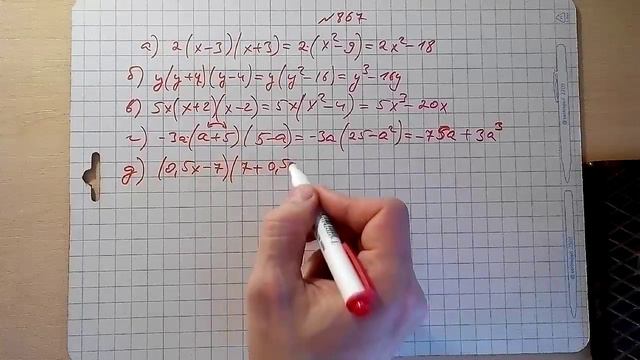 №867
а) 2(x-3)(x+3)=2·(x²-9)=2x²-18
б) y(y+4)(y-4)=y(y²-16)=y³-16y
в) 5x(x+2)(x-2)=5x(x²-4)=5x³-20x
г) -3a(a+5)(5-a)=-3a(25-a²)=-75a+3a³
д) (0,5x-7)(7+0,5